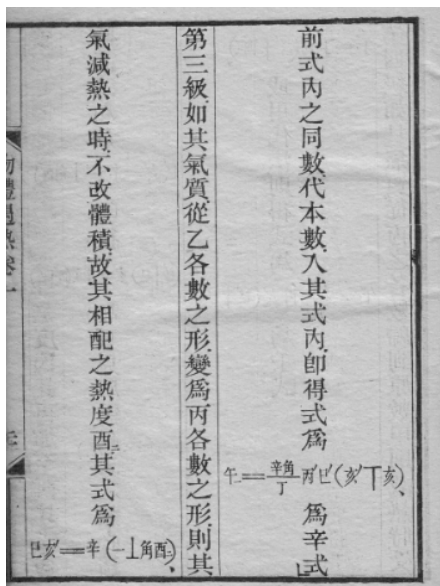 前式內之同數代本數入其式內卽得式爲 午二=辛角/丁 丙′巳′(亥′丅亥)、 爲辛式
第三級如其氣質從乙各數之形變爲丙各數之形則其
氣減熱之時不改體積故其相配之熱度酉二其式爲 巳亥′=辛(一丄角酉二)、
物體遇熱卷一